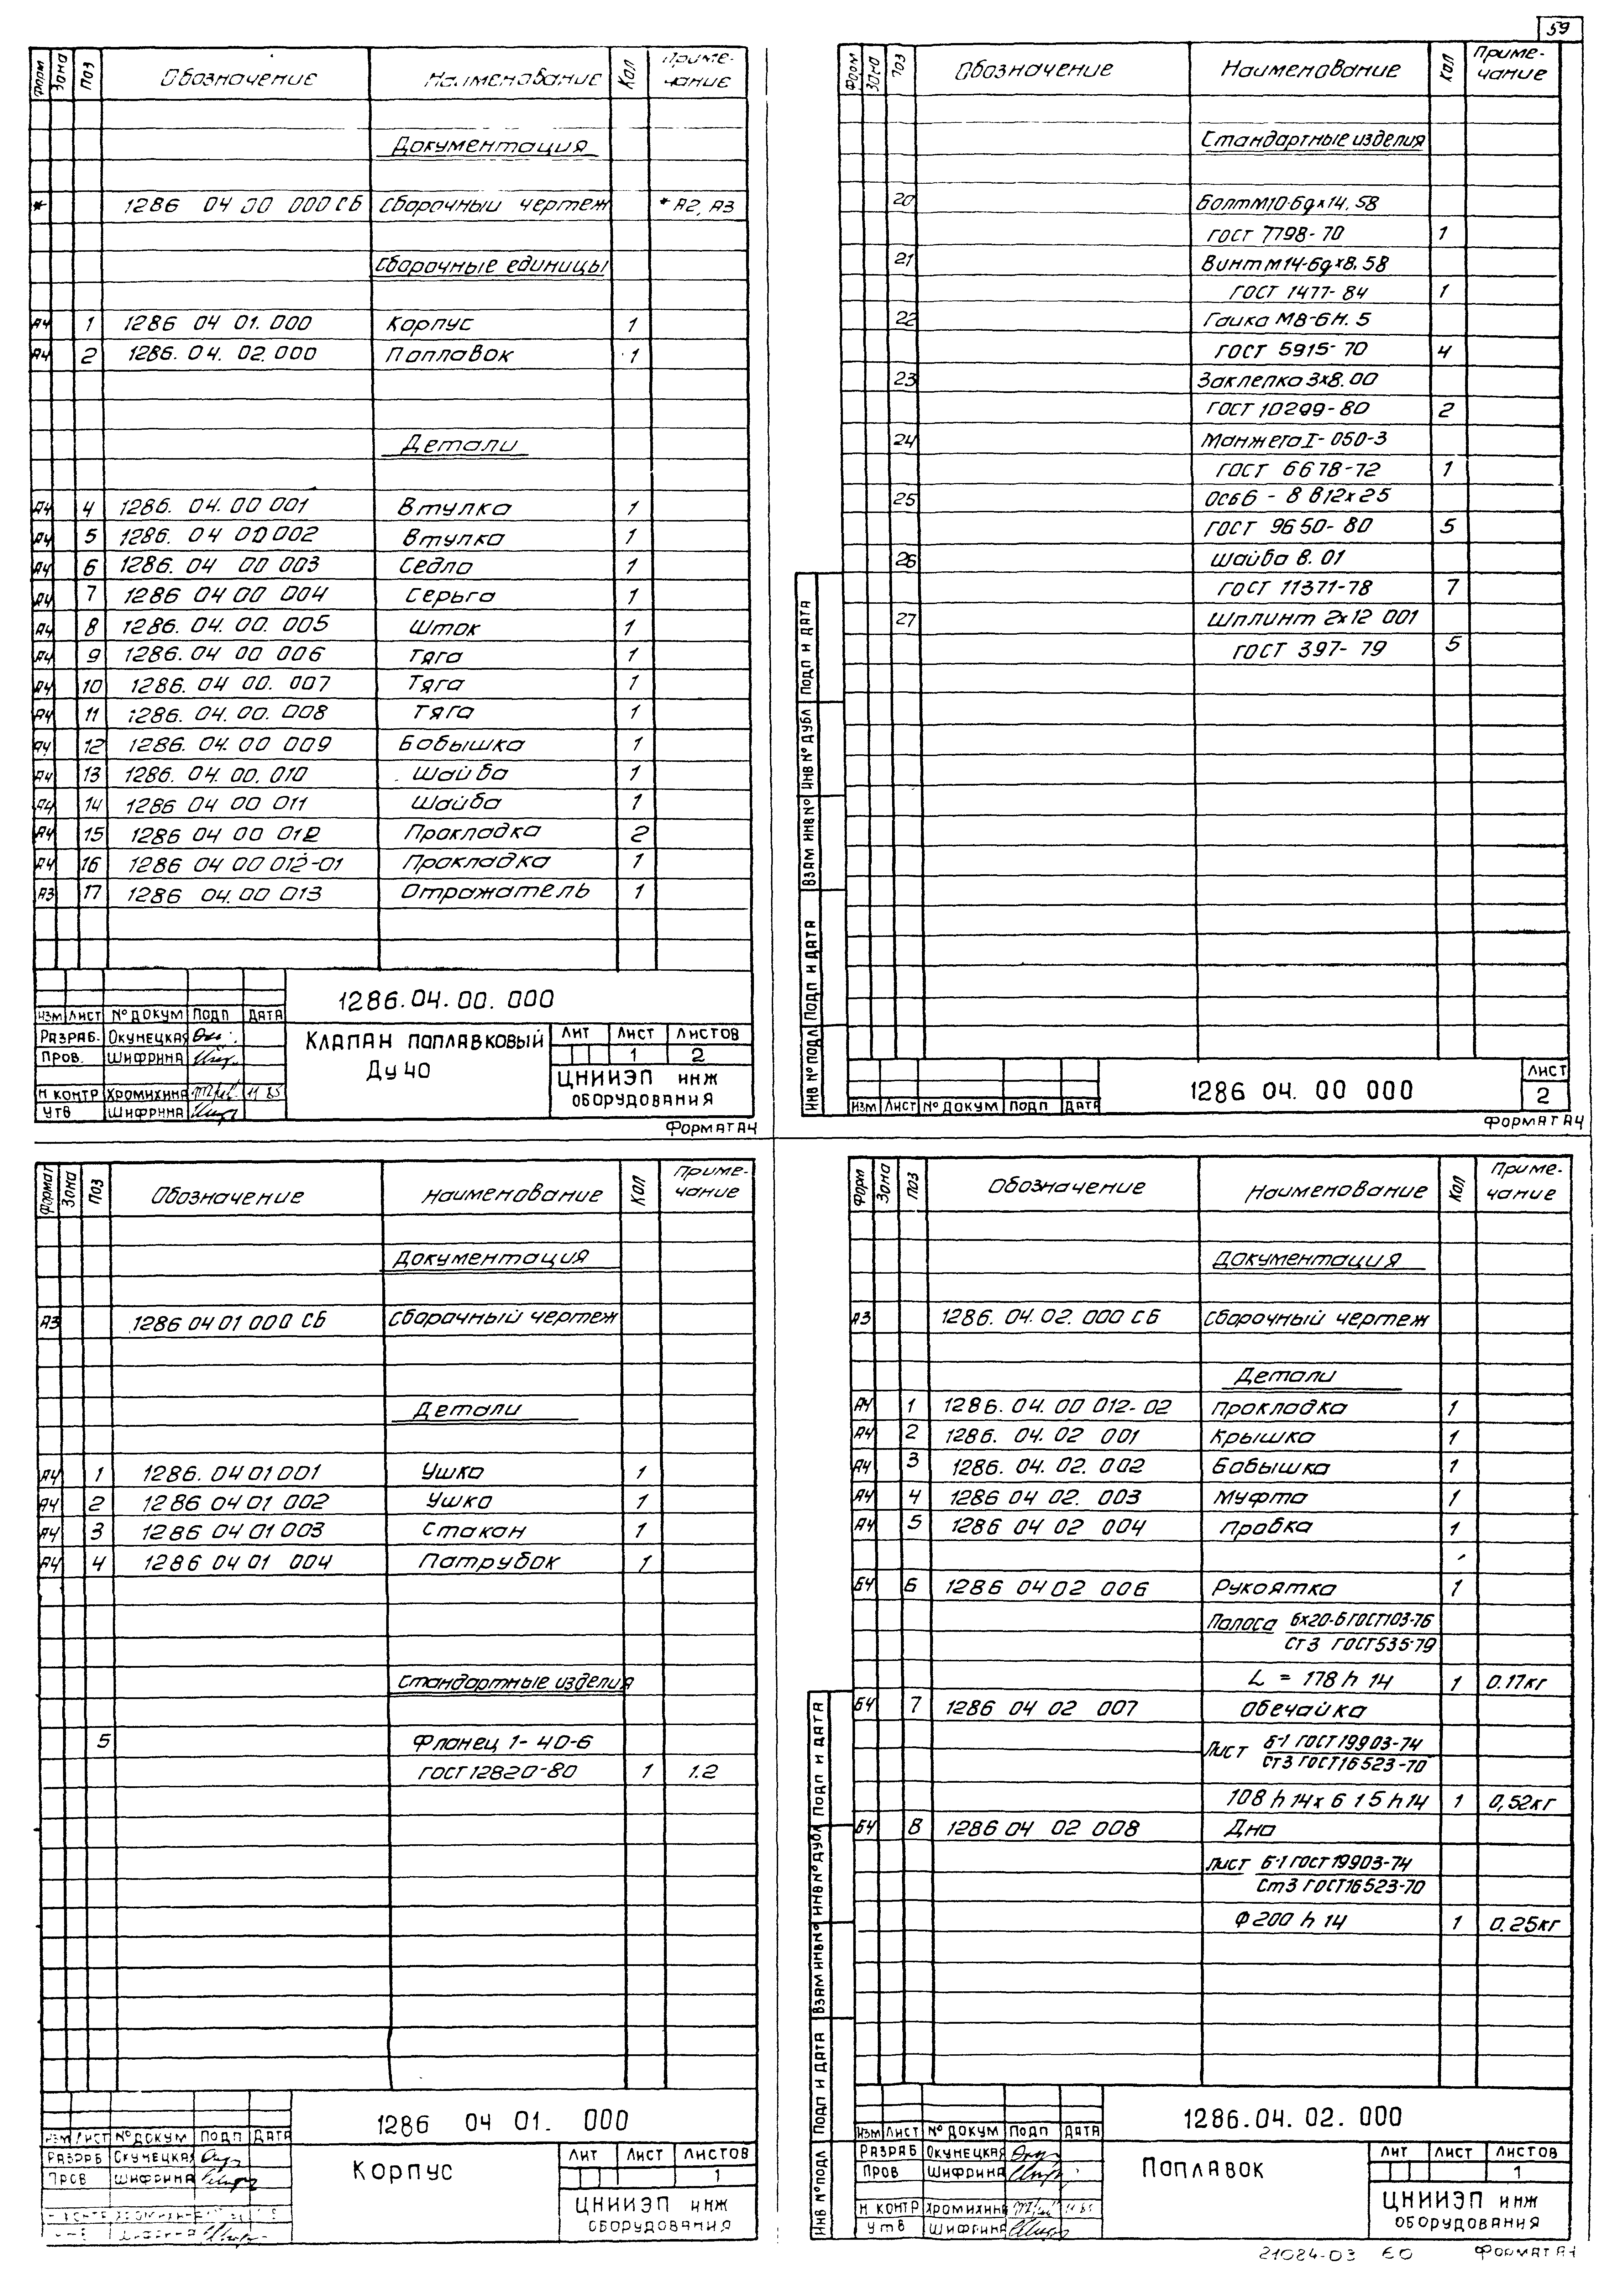 59
Форм Зона Поз Обозначение Наименование Кол Приме-
чание
Документация
* 1286 04 00 000 СБ Сборочный чертеж * А2, А3
Сборочные единицы
А4 1 1286 04 01. 000 Корпус 1
А4 2 1286. 04. 02. 000 Поплавок 1
Детали
А4 4 1286. 04. 00 001 Втулка 1
А4 5 1286. 04 00 002 Втулка 1
А4 6 1286. 04 00 003 Седло 1
А4 7 1286 04 00 004 Серьга 1
А4 8 1286. 04. 00. 005 Шток 1
А4 9 1286. 04 00 006 Тяга 1
А4 10 1286. 04 00. 007 Тяга 1
А4 11 1286. 04. 00. 008 Тяга 1
А4 12 1286. 04. 00 009 Бобышка 1
А4 13 1286. 04. 00. 010 Шайба 1
А4 14 1286 04 00 011 Шайба 1
А4 15 1286 04 00 012 Прокладка 2
А4 16 1286 04 00 012-01 Прокладка 1
А3 17 1286 04. 00 013 Отражатель 1
1286. 04. 00. 000
Изм Лист № докум Подп Дата
Разраб. Окунецкая
Пров. Шифрина
Н контр Хромихина 11 85
Утв Шифрина
Клапан поплавковый
Ду 40
Лит Лист Листов
1 2
ЦНИИЭП инж
оборудования
Формат А4
Форм Зона Поз Обозначение Наименование Кол Приме-
чание
Стандартные изделия
20 Болт М10-6gх14. 58
ГОСТ 7798-70 1
21 Винт М14-6gх8. 58
ГОСТ 1477-84 1
22 Гайка М8-6Н. 5
ГОСТ 5915-70 4
23 Заклепка 3х8. 00
ГОСТ 10299-80 2
24 Манжета I-050-3
ГОСТ 6678-72 1
25 Ось 6 - 8 в12х25
ГОСТ 9650-80 5
26 Шайба 8. 01
ГОСТ 11371-78 7
27 Шплинт 2х12 001
ГОСТ 397-79 5
Инв № подл Подп и дата Взам инв № Инв № дубл Подп и дата
Изм Лист № докум Подп Дата
1286 04. 00 000
Лист
2
Формат А4
Формат Зона Поз Обозначение Наименование Кол Приме-
чание
Документация
А3 1286 04 01 000 СБ Сборочный чертеж
Детали
А4 1 1286. 04 01 001 Ушко 1
А4 2 1286 04 01 002 Ушко 1
А4 3 1286 04 01 003 Стакан 1
А4 4 1286 04 01 004 Патрубок 1
Стандартные изделия
5 Фланец 1-40-6
ГОСТ 12820-80 1 1.2
1286 04 01. 000
Изм Лист № докум Подп Дата
Разраб Окунецкая
Пров Шифрина
Н контр Хромихина
Утв Шифрина
Корпус
Лит Лист Листов
1
ЦНИИЭП инж
оборудования
Форм Зона Поз Обозначение Наименование Кол Приме-
чание
Документация
А3 1286. 04. 02. 000 СБ Сборочный чертеж
Детали
А4 1 1286. 04. 00 012-02 Прокладка 1
А4 2 1286. 04. 02 001 Крышка 1
А4 3 1286. 04. 02. 002 Бобышка 1
А4 4 1286 04 02. 003 Муфта 1
А4 5 1286 04 02 004 Пробка 1
Б4 6 1286 04 02 006 Рукоятка 1
Полоса 6х20-Б ГОСТ 103-76
Ст 3 ГОСТ 535-79
L = 178 h 14 1 0.17кг
Б4 7 1286 04 02 007 Обечайка
Лист Б-1 ГОСТ 19903-74
Ст 3 ГОСТ 16523-70
108 h 14х 615 h 14 1 0,52кг
Б4 8 1286 04 02 008 Дно
Лист Б-1 ГОСТ 19903-74
Ст 3 ГОСТ 16523-70
Ф 200 h 14 1 0.25кг
Инв № подл Подп и дата Взам инв № Инв № дубл Подп и дата
1286. 04. 02. 000
Изм Лист № докум Подп Дата
Разраб Окунецкая
Пров Шифрина
Н контр Хромихина 11 85
Утв Шифрина
Поплавок
Лит Лист Листов
1
ЦНИИЭП инж
оборудования
21084-03 60
Формат А4